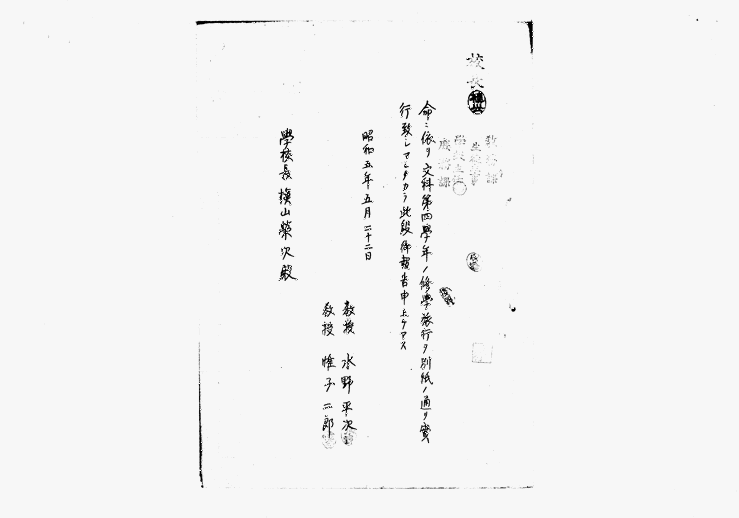 校長
教務課
命ニ依リ文科第四學年ノ修學旅行ヲ別紙ノ通リ實
行致シマシタカラ此段御報告申上ケマス
昭和五年五月二十二日
教授 水野平次
教授 惟子二郎
學校長 槇山榮次殿